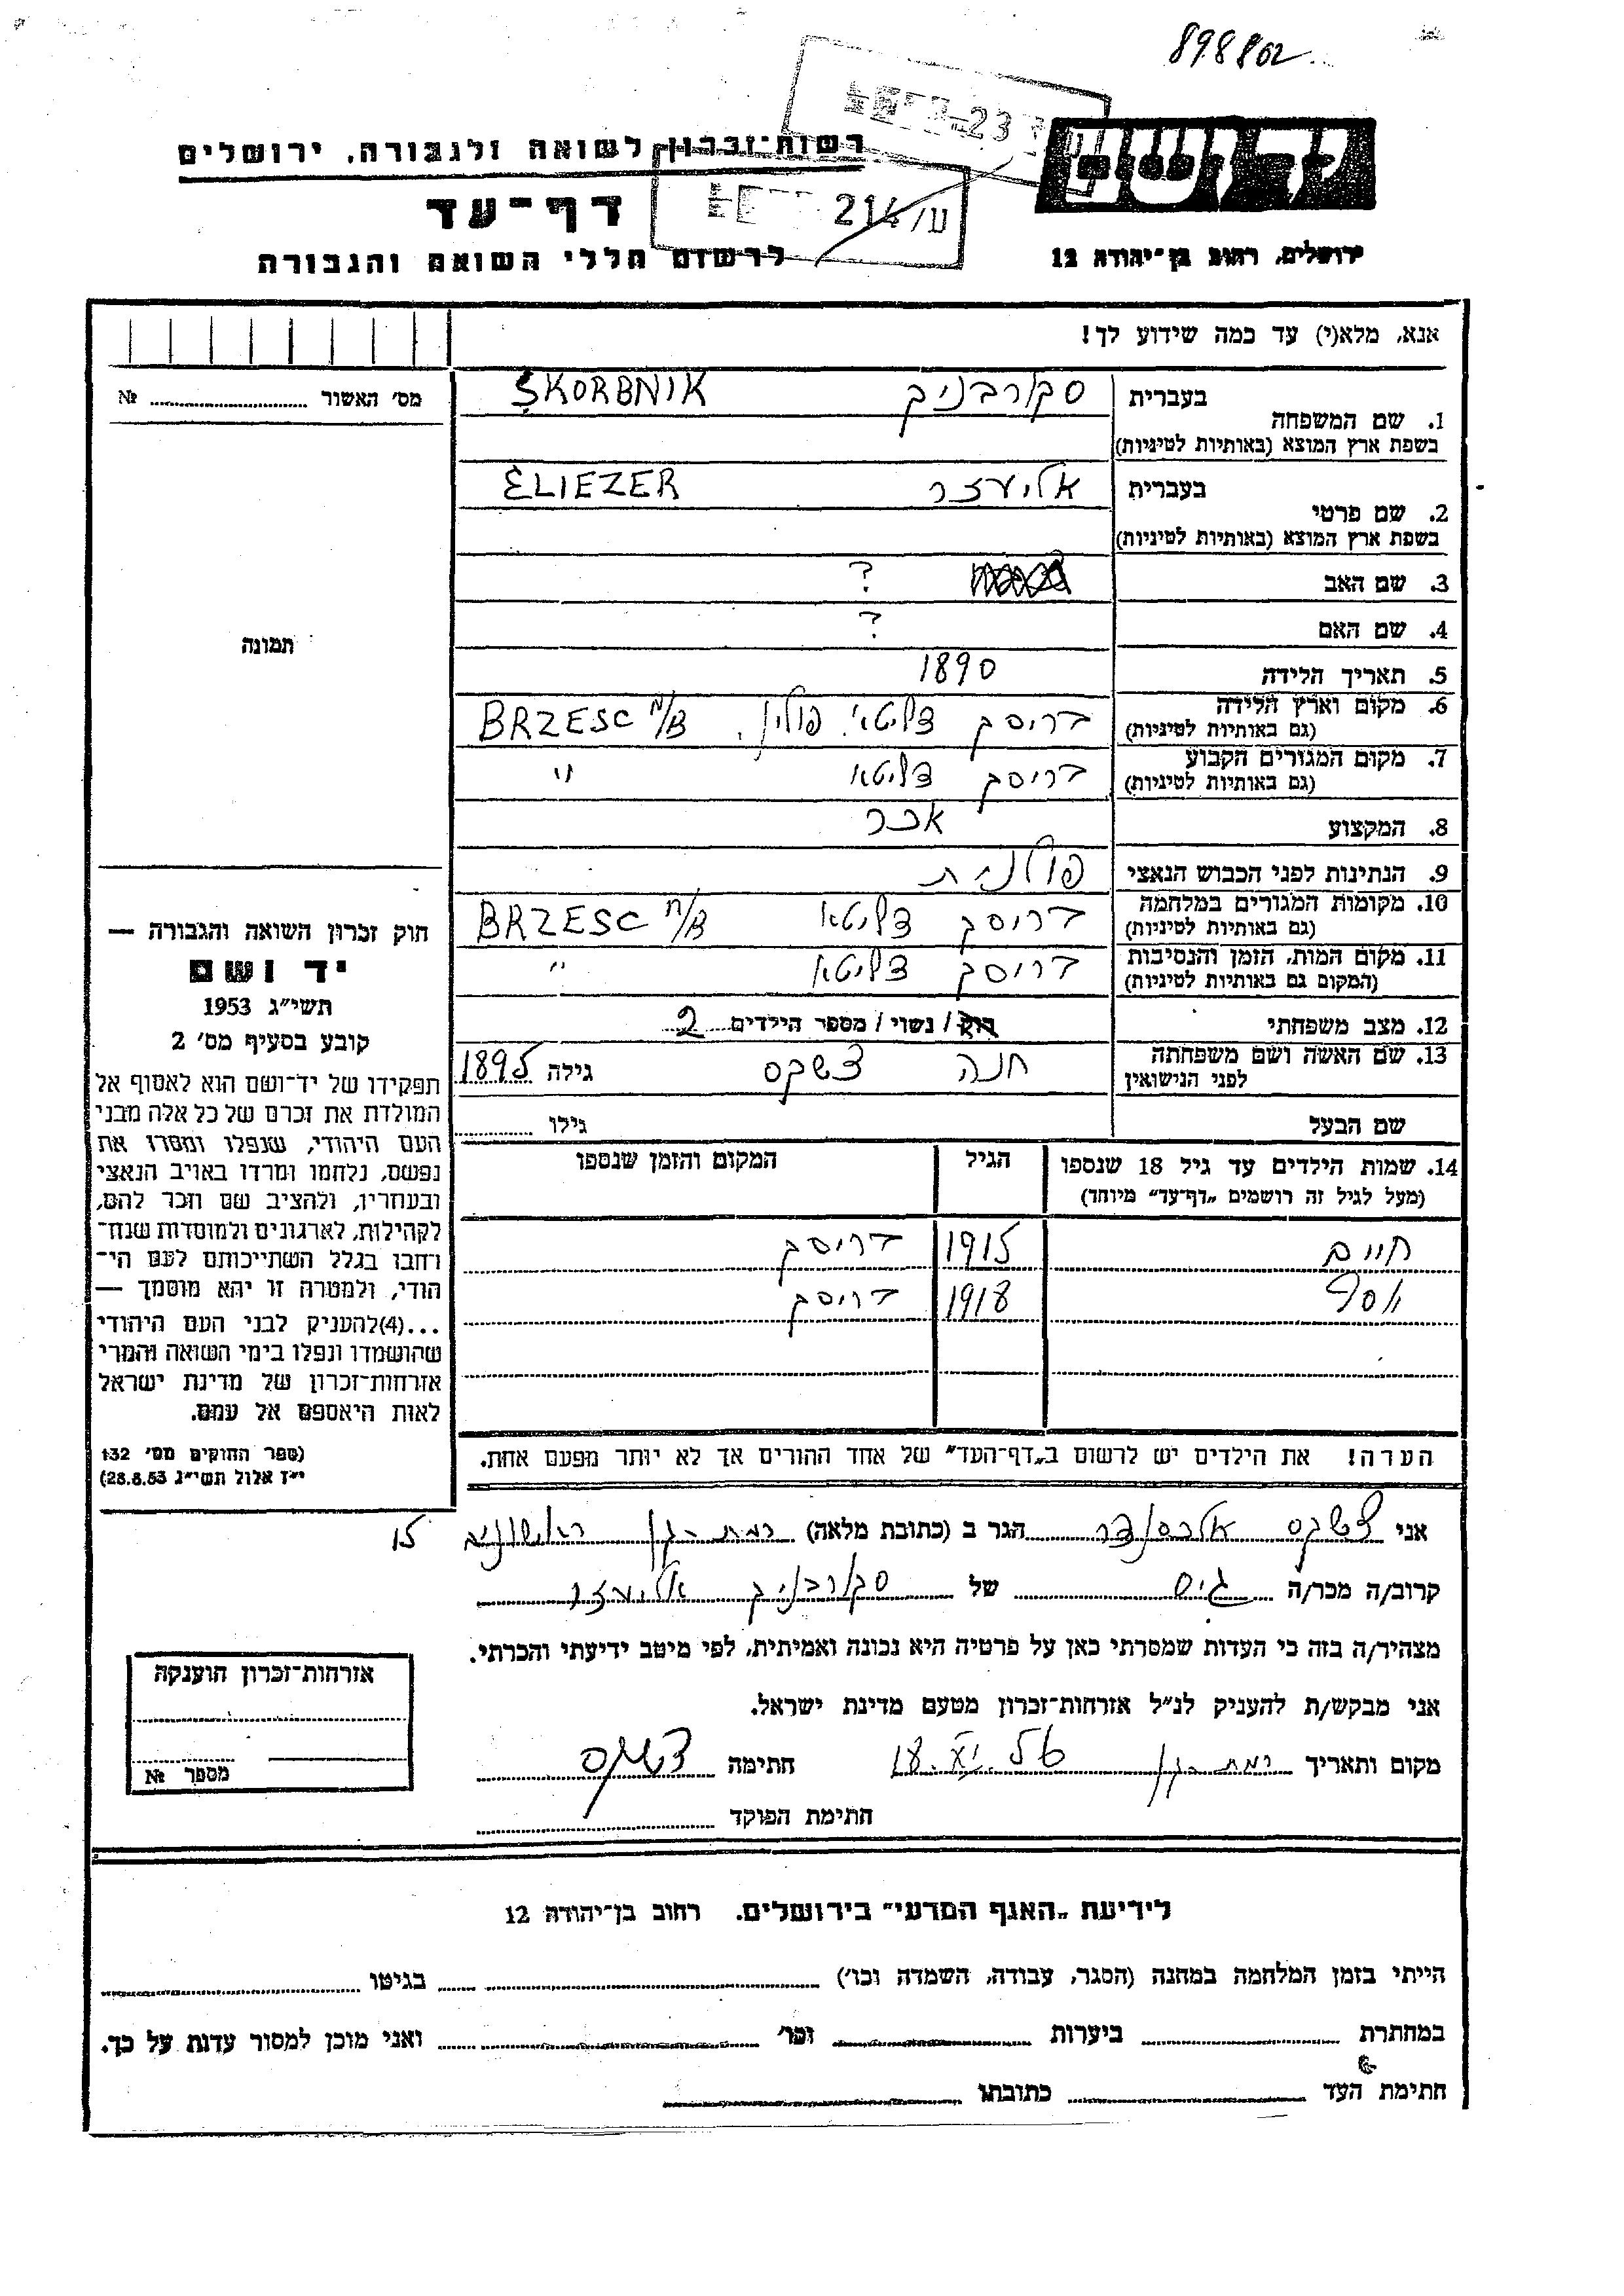 898802
23
רשות־זכרון לשואה ולגבורה, ירושלים
יד ושם
214/ע
דף־עד
לרשום חללי השואה והגבורה
ירושלים, רחוב בן־יהודה 12
אנא, מלא(י) עד כמה שידוע לך!
מס׳ האשור ........ №
בעברית סקורבניק SKORBNIK
1. שם המשפחה
בשפת ארץ המוצא (באותיות לטיניות)
בעברית אליעזר ELIEZER
2. שם פרטי
בשפת ארץ המוצא (באותיות לטיניות)
3. שם האב ?
4. שם האם ?
5. תאריך הלידה 1890
6. מקום וארץ הלידה בריסק דליטא, פולין. BRZESC n/B
(גם באותיות לטיניות)
7. מקום המגורים הקבוע בריסק דליטא "
(גם באותיות לטיניות)
8. המקצוע אכר
9. הנתינות לפני הכבוש הנאצי פולנית
10. מקומות המגורים במלחמה בריסק דליטא BRZESC n/B
(גם באותיות לטיניות)
11. מקום המות, הזמן והנסיבות בריסק דליטא "
(המקום גם באותיות לטיניות)
12. מצב משפחתי רוק / נשוי / מספר הילדים 2
13. שם האשה ושם משפחתה חנה גילה 1895
לפני הנישואין
שם הבעל גילו
14. שמות הילדים עד גיל 18 שנספו הגיל המקום והזמן שנספו
(מעל לגיל זה רושמים „דף־עד" מיוחד)
חיים 1915 בריסק
יוסף 1918 בריסק
הערה! את הילדים יש לרשום ב„דף־העד" של אחד ההורים אך לא יותר מפעם אחת.
תמונה
חוק זכרון השואה והגבורה —
יד ושם
תשי״ג 1953
קובע בסעיף מס׳ 2
תפקידו של יד־ושם הוא לאסוף אל
המולדת את זכרם של כל אלה מבני
העם היהודי, שנפלו ומסרו את
נפשם, נלחמו ומרדו באויב הנאצי
ובעוזריו, ולהציב שם וזכר להם,
לקהילות, לארגונים ולמוסדות שנח־
רחבו בגלל השתייכותם לעם הי־
הודי, ולמטרה זו יהא מוסמך —
...(4)להעניק לבני העם היהודי
שהושמדו ונפלו בימי השואה והמרי
אזרחות־זכרון של מדינת ישראל
לאות היאספם אל עמם.
(ספר החוקים מס׳ 132
י״ז אלול תשי״ג 28.8.53)
אני אלכסנדר הגר ב (כתובת מלאה) רמת גן 15
קרוב/ה מכר/ה גיס של סקורבניק אליעזר
מצהיר/ה בזה כי העדות שמסרתי כאן על פרטיה היא נכונה ואמיתית, לפי מיטב ידיעתי והכרתי.
אני מבקש/ת להעניק לנ״ל אזרחות־זכרון מטעם מדינת ישראל.
מקום ותאריך רמת גן 18. חתימה
חתימת הפוקד
אזרחות־זכרון הוענקה
מספר №
לידיעת „האגף המדעי" בירושלים, רחוב בן־יהודה 12
הייתי בזמן המלחמה במחנה (הסגר, עבודה, השמדה וכו׳) בגיטו
במחתרת ביערות וכו׳ ואני מוכן למסור עדות על כך.
חתימת העד כתובתו